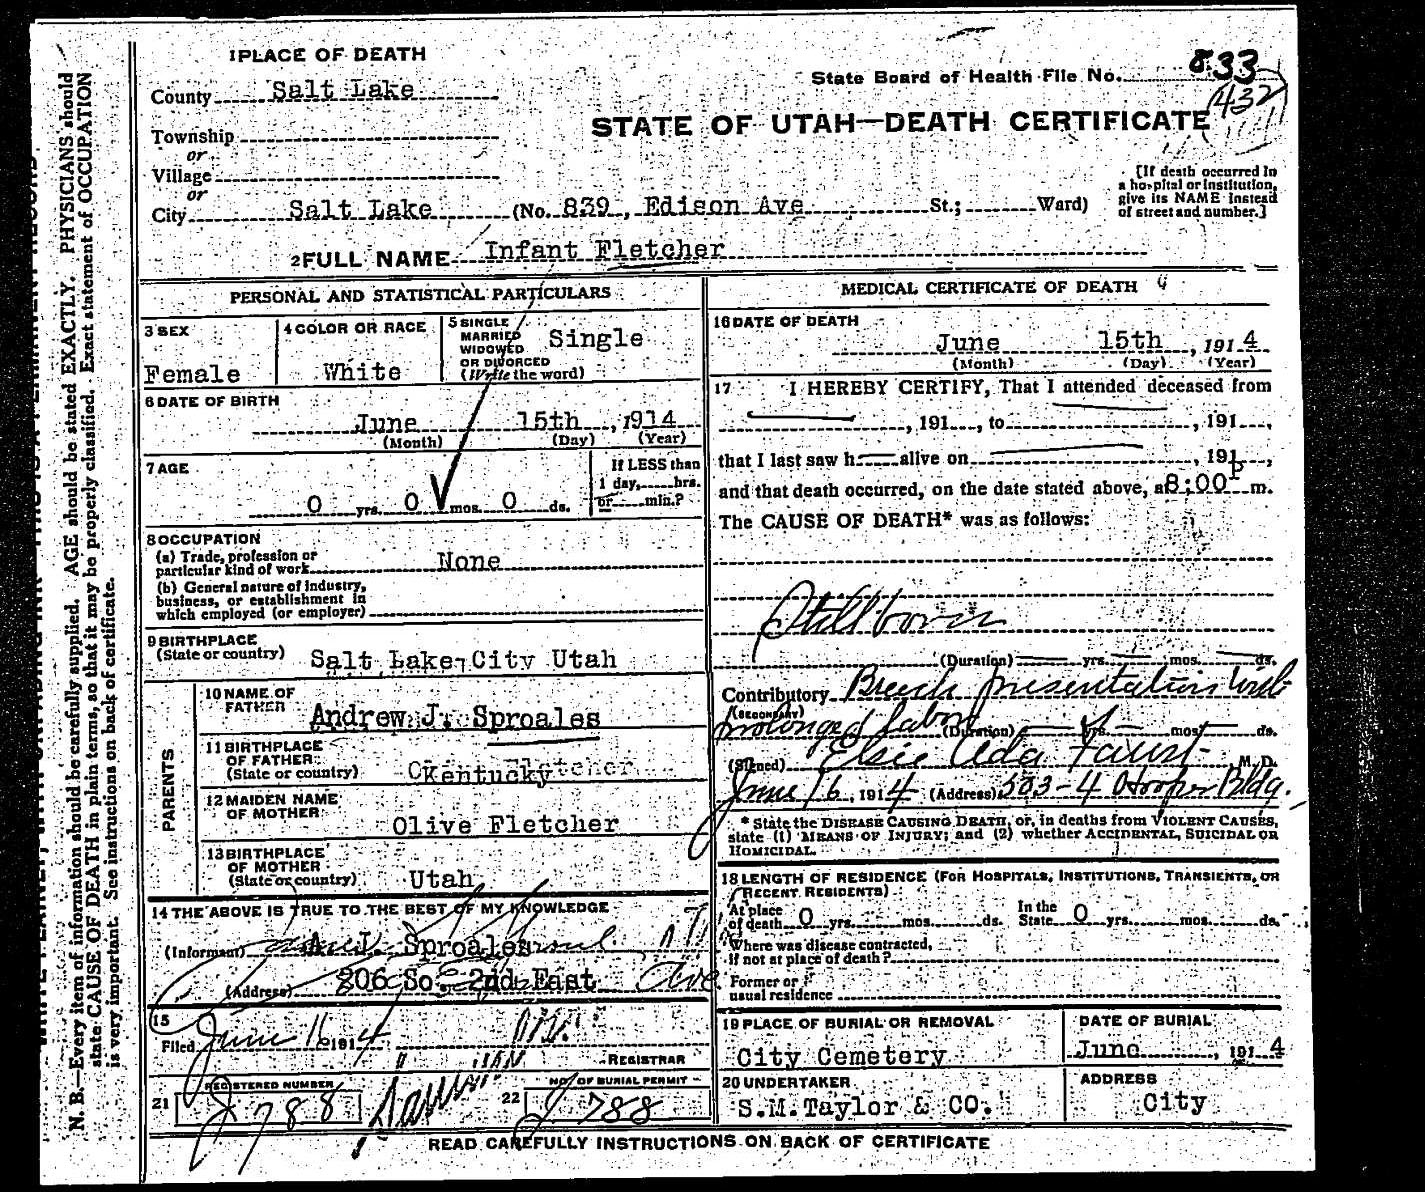 1 PLACE OF DEATH
County Salt Lake
Township
or
Village
or
City Salt Lake (No. 839, Edison Ave St.; Ward)
State Board of Health File No. 833
432
STATE OF UTAH—DEATH CERTIFICATE
[If death occurred in
a hospital or institution,
give its NAME instead
of street and number.]
2 FULL NAME Infant Fletcher
PERSONAL AND STATISTICAL PARTICULARS
3 SEX
Female
4 COLOR OR RACE
White
5 SINGLE
MARRIED
WIDOWED
OR DIVORCED
(Write the word)
Single
6 DATE OF BIRTH
June 15th, 1914
(Month) (Day) (Year)
7 AGE
0 yrs. 0 mos. 0 ds.
If LESS than
1 day, hrs.
or min.?
8 OCCUPATION
(a) Trade, profession or
particular kind of work None
(b) General nature of industry,
business, or establishment in
which employed (or employer)
9 BIRTHPLACE
(State or country) Salt Lake City Utah
PARENTS
10 NAME OF
FATHER Andrew J. Sproales
11 BIRTHPLACE
OF FATHER
(State or country) Kentucky
12 MAIDEN NAME
OF MOTHER
Olive Fletcher
13 BIRTHPLACE
OF MOTHER
(State or country) Utah
14 THE ABOVE IS TRUE TO THE BEST OF MY KNOWLEDGE
(Informant) A.J. Sproales
(Address) 806 So. 2nd East Ave
15
Filed June 16 1914
REGISTRAR
21 REGISTERED NUMBER
J 788
22 NO. OF BURIAL PERMIT
J 788
MEDICAL CERTIFICATE OF DEATH
16 DATE OF DEATH
June 15th, 1914
(Month) (Day) (Year)
17 I HEREBY CERTIFY, That I attended deceased from
, 191 , to , 191 ,
that I last saw h alive on , 191 ,
and that death occurred, on the date stated above, at 8:00 p m.
The CAUSE OF DEATH* was as follows:
Stillborn
(Duration) yrs. mos. ds.
Contributory Breech presentation with
(SECONDARY)
prolonged labor (Duration) yrs. mos. ds.
(Signed) Elsie Ada Faust, M.D.
June 16, 1914 (Address) 503-4 Hooper Bldg.
* State the DISEASE CAUSING DEATH, or, in deaths from VIOLENT CAUSES,
state (1) MEANS OF INJURY; and (2) whether ACCIDENTAL, SUICIDAL OR
HOMICIDAL.
18 LENGTH OF RESIDENCE (FOR HOSPITALS, INSTITUTIONS, TRANSIENTS, OR
RECENT RESIDENTS)
At place
of death 0 yrs. mos. ds.
In the
State 0 yrs. mos. ds.
Where was disease contracted,
if not at place of death?
Former or
usual residence
19 PLACE OF BURIAL OR REMOVAL
City Cemetery
DATE OF BURIAL
June , 1914
20 UNDERTAKER
S.M. Taylor & CO.
ADDRESS
City
READ CAREFULLY INSTRUCTIONS ON BACK OF CERTIFICATE
N. B.—Every item of information should be carefully supplied. AGE should be stated EXACTLY. PHYSICIANS should
state CAUSE OF DEATH in plain terms, so that it may be properly classified. Exact statement of OCCUPATION
is very important. See instructions on back of certificate.